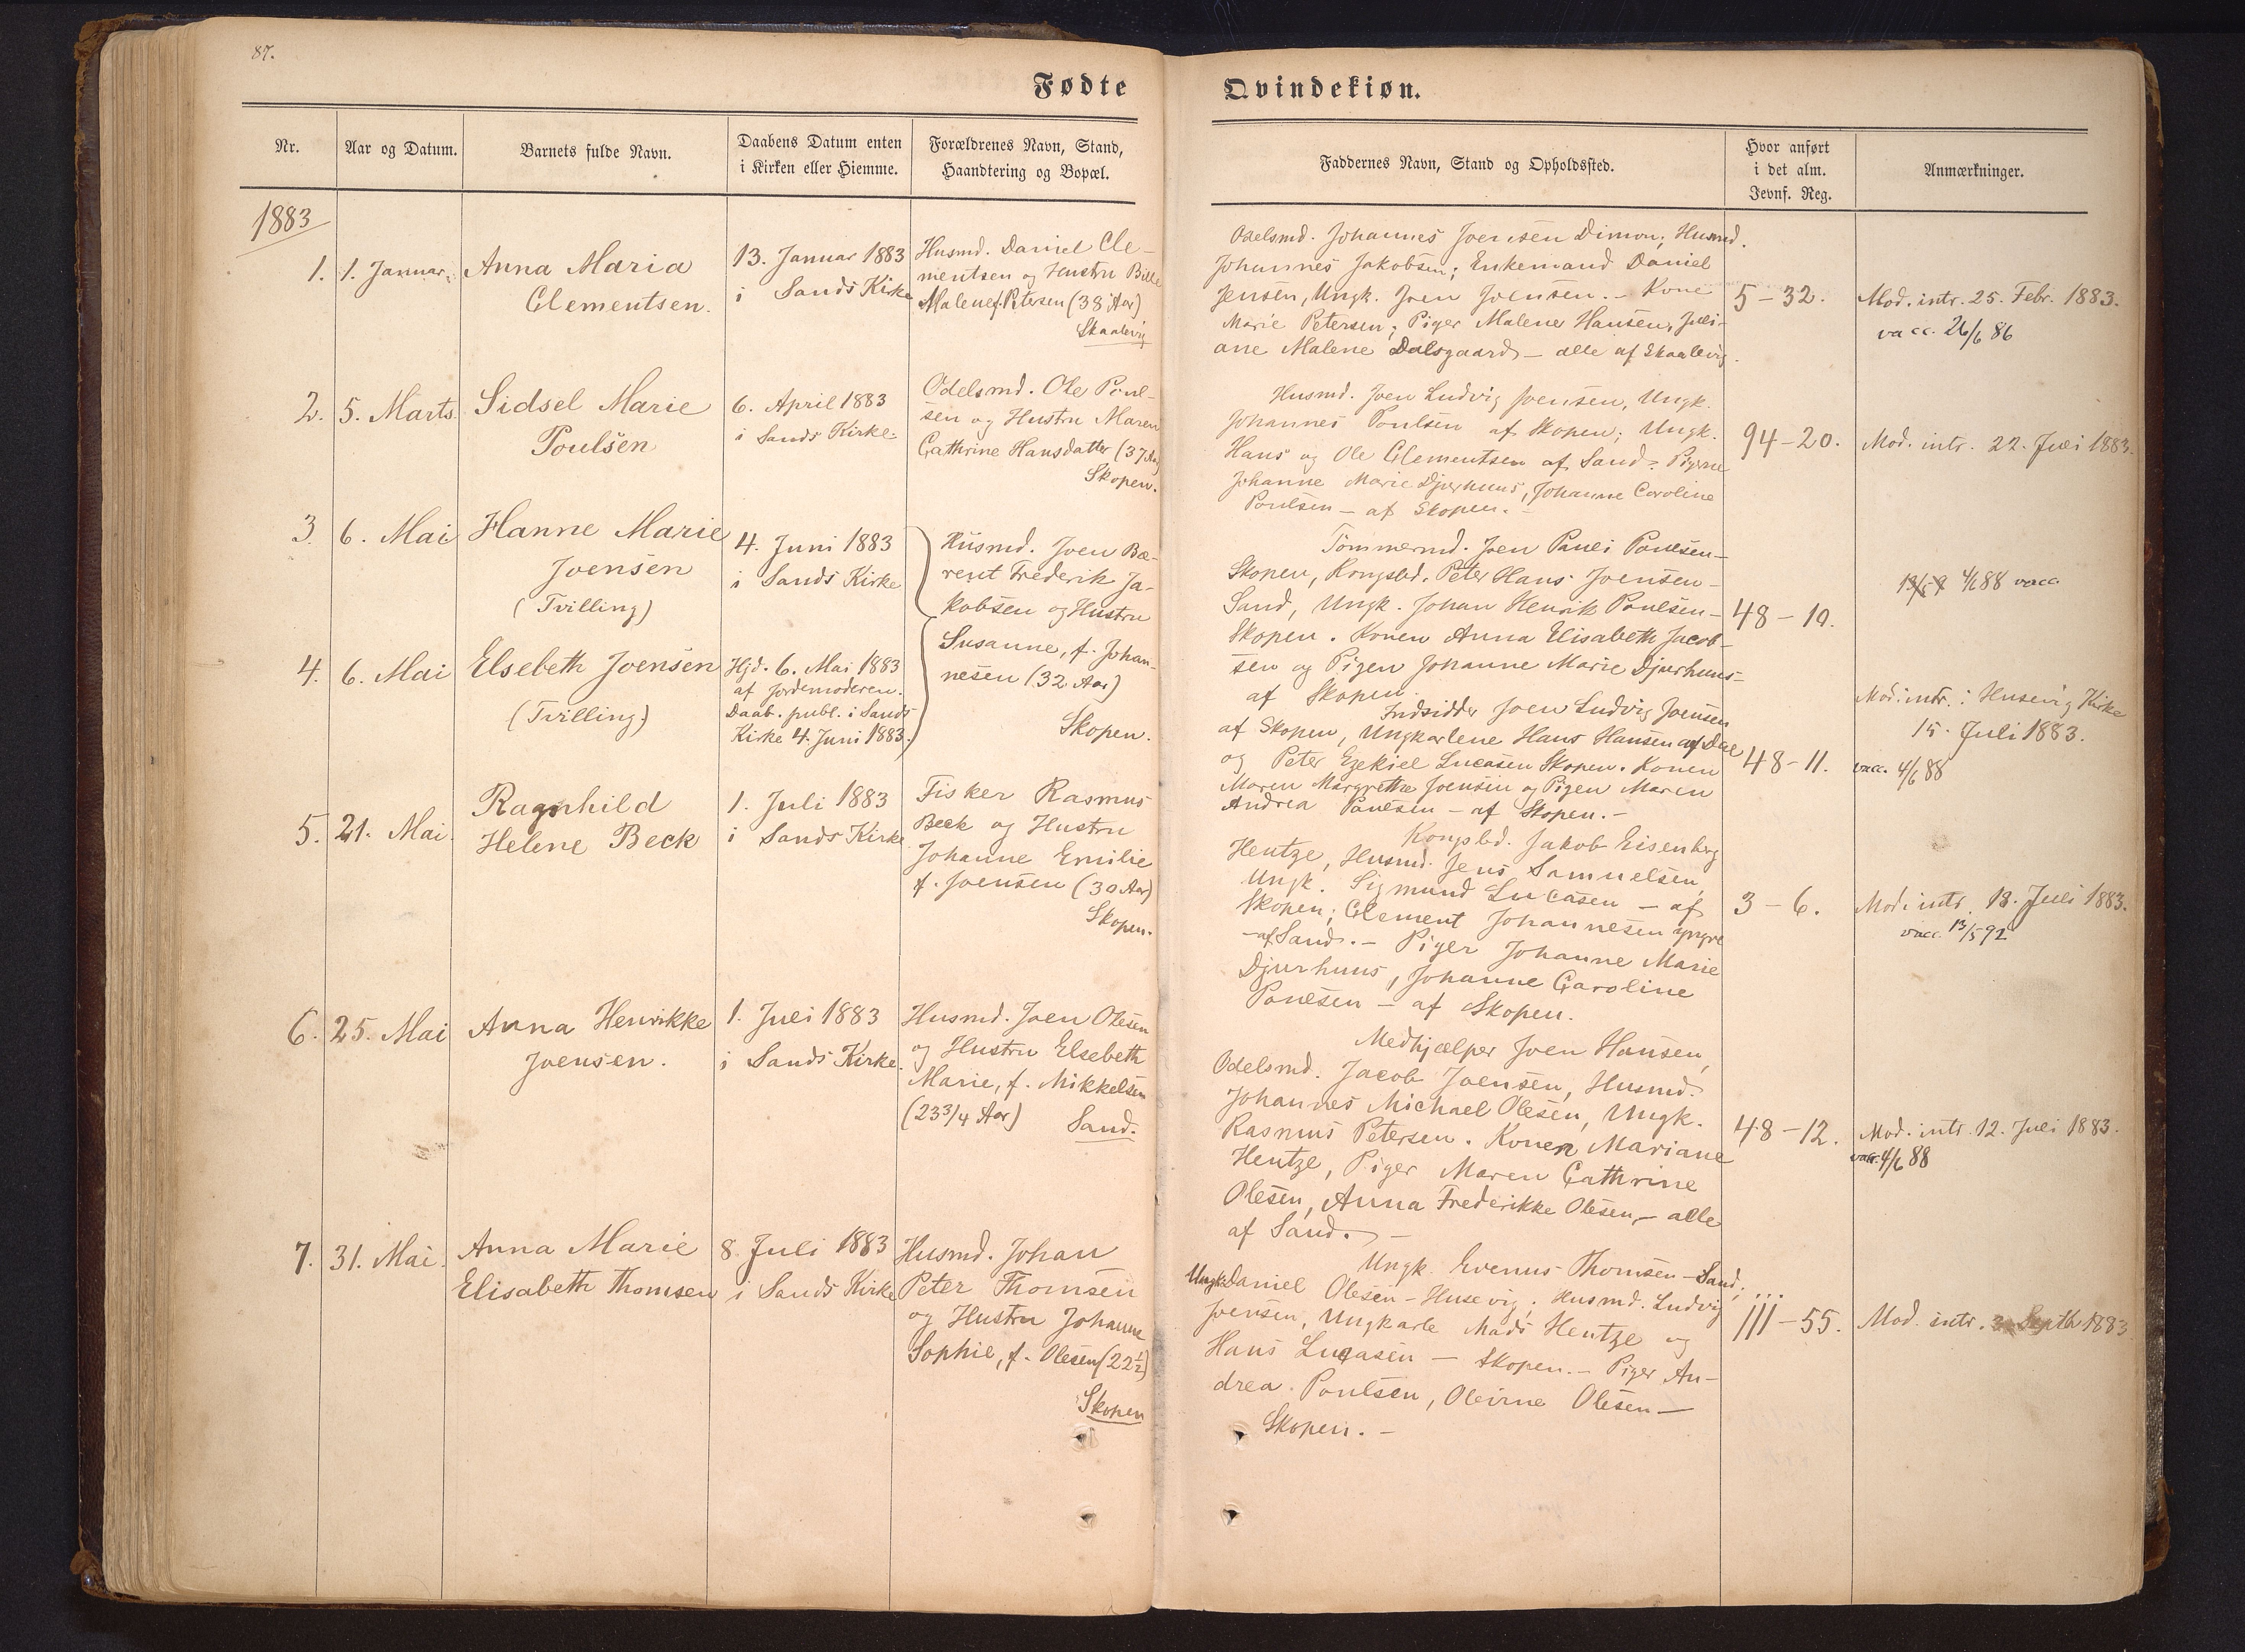 87.
Fødte
Qvindekiøn.
Nr.
Aar og Datum.
Barnets fulde Navn.
Daabens Datum enten
i Kirken eller Hiemme.
Forældrenes Navn, Stand,
Haandtering og Bopæl.
Faddernes Navn, Stand og Opholdssted.
Hvor anført
i det alm.
Jevnf. Reg.
Anmærkninger.
1883
1.
1. Januar.
Anna Maria
Clementsen.
13. Januar 1883
i Sands Kirke
Husmd. Daniel Cle-
mentsen og Hustru Bille
Malene f. Petersen (38 Aar)
Skaalevig
Odelsmd. Johannes Joensen Dimon; Husmd.
Johannes Jakobsen; Enkemand Daniel
Jensen, Ungk. Joen Joensen. - Kone
Marie Petersen; Piger Malene Hansen, Juli-
ane Malene Dalsgaard - alle af Skaalevig.
5-32.
Mod. intr. 25. Febr. 1883.
vacc. 26/6 86
2.
5. Marts.
Sidsel Marie
Poulsen
6. April 1883
i Sands Kirke.
Odelsmd. Ole Poul-
sen og Hustru Maren
Cathrine Hansdatter (37 Aar)
Skopen.
Husmd. Joen Ludvig Joensen, Ungk.
Johannes Poulsen af Skopen; Ungk.
Hans og Ole Clementsen af Sand. Pigerne
Johanne Marie Djurhuus, Johanne Caroline
Poulsen - af Skopen. -
94-20.
Mod. intr. 22. Juli 1883.
3.
6. Mai
Hanne Marie
Joensen
(Tvilling)
4. Juni 1883
i Sands Kirke
Husmd. Joen Bæ-
rent Frederik Ja-
kobsen og Hustru
Susanne, f. Johan-
nesen (32 Aar)
Skopen.
Tømmermd. Joen Pauli Poulsen -
Skopen, Kongsbd. Peter Hans Joensen -
Sand, Ungk. Johan Henrik Poulsen -
Skopen. Konen Anna Elisabeth Jacob-
sen og Pigen Johanne Marie Djurhuus -
af Skopen.
48-10.
4/6 88 vacc.
4.
6. Mai
Elsebeth Joensen
(Tvilling)
Hjd. 6. Mai 1883
af Jordemoderen.
Daab. publ. i Sands
Kirke 4. Juni 1883.
Indsidder Joen Ludvig Joensen
af Skopen, Ungkarlene Hans Hansen af Dal
og Peter Ezekiel Lucasen Skopen. Konen
Maren Margrethe Joensen og Pigen Maren
Andrea Poulsen - af Skopen. -
48-11.
Mod. intr. i Husevig Kirke
15. Juli 1883.
vacc. 4/6 88
5.
21. Mai.
Ragnhild
Helene Beck
1. Juli 1883
i Sands Kirke
Fisker Rasmus
Beck og Hustru
Johanne Emilie
f. Joensen (30 Aar)
Skopen.
Kongsbd. Jakob Eisenberg
Hentze, Husmd. Jens Samuelsen,
Ungk. Sigmund Lucasen - af
Skopen; Clement Johannesen yngre
- af Sand. - Piger Johanne Marie
Djurhuus, Johanne Caroline
Poulsen - af Skopen.
3-6.
Mod. intr. 18. Juli 1883.
vacc. 13/5 92
6.
25. Mai
Anna Henrikke
Joensen.
1. Juli 1883
i Sands Kirke.
Husmd. Joen Olesen
og Hustru Elsebeth
Marie, f. Mikkelsen
(23 3/4 Aar)
Sand.
Medhjælper Joen Hansen,
Odelsmd. Jacob Joensen, Husmd.
Johannes Michael Olesen, Ungk.
Rasmus Petersen. Konen Mariane
Hentze, Piger Maren Cathrine
Olesen, Anna Frederikke Olesen, - alle
af Sand. -
48-12.
Mod. intr. 12. Juli 1883.
vacc. 4/6 88
7.
31. Mai.
Anna Marie
Elisabeth Thomsen
8. Juli 1883
i Sands Kirke
Husmd. Johan
Peter Thomsen
og Hustru Johanne
Sophie, f. Olesen (22 1/2)
Skopen
Ungk. Evenus Thomsen - Sand;
Ungk. Daniel Olesen - Husevig; Husmd. Ludvig
Joensen, Ungkarle Mads Hentze og
Hans Lucasen - Skopen. - Piger An-
drea Poulsen, Olevine Olesen -
Skopen. -
111-55.
Mod. intr. Septb 1883.